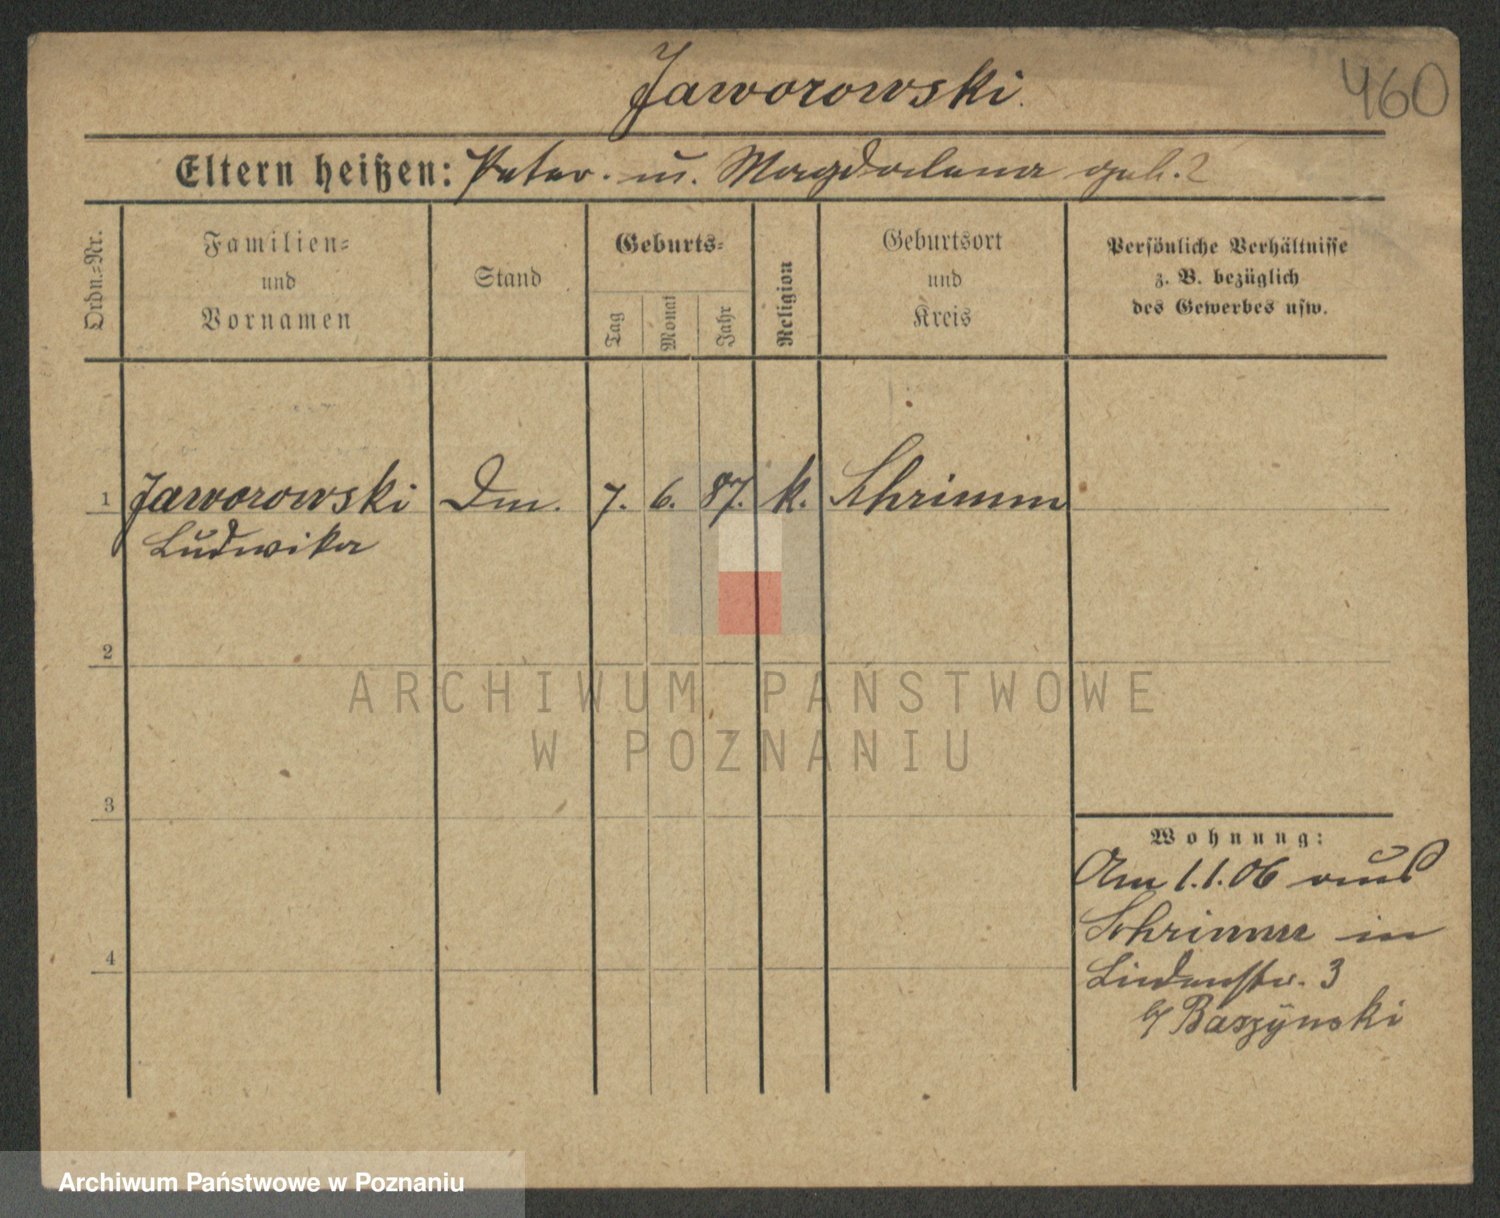 Jaworowski.
460
Eltern heißen: Peter. u. Magdalena geb. ?
Ordn.=Nr.
Familien=
und
Vornamen
Stand
Geburts=
Tag
Monat
Jahr
Religion
Geburtsort
und
Kreis
Persönliche Verhältnisse
z. B. bezüglich
des Gewerbes usw.
1 Jaworowski Dm. 7. 6. 87. k. Schrimm
Ludwika
2
3
4
Wohnung:
Am 1.1.06 aus
Schrimm in
Lindenstr. 3
b/ Baszynski
ARCHIWUM PAŃSTWOWE
W POZNANIU
Archiwum Państwowe w Poznaniu